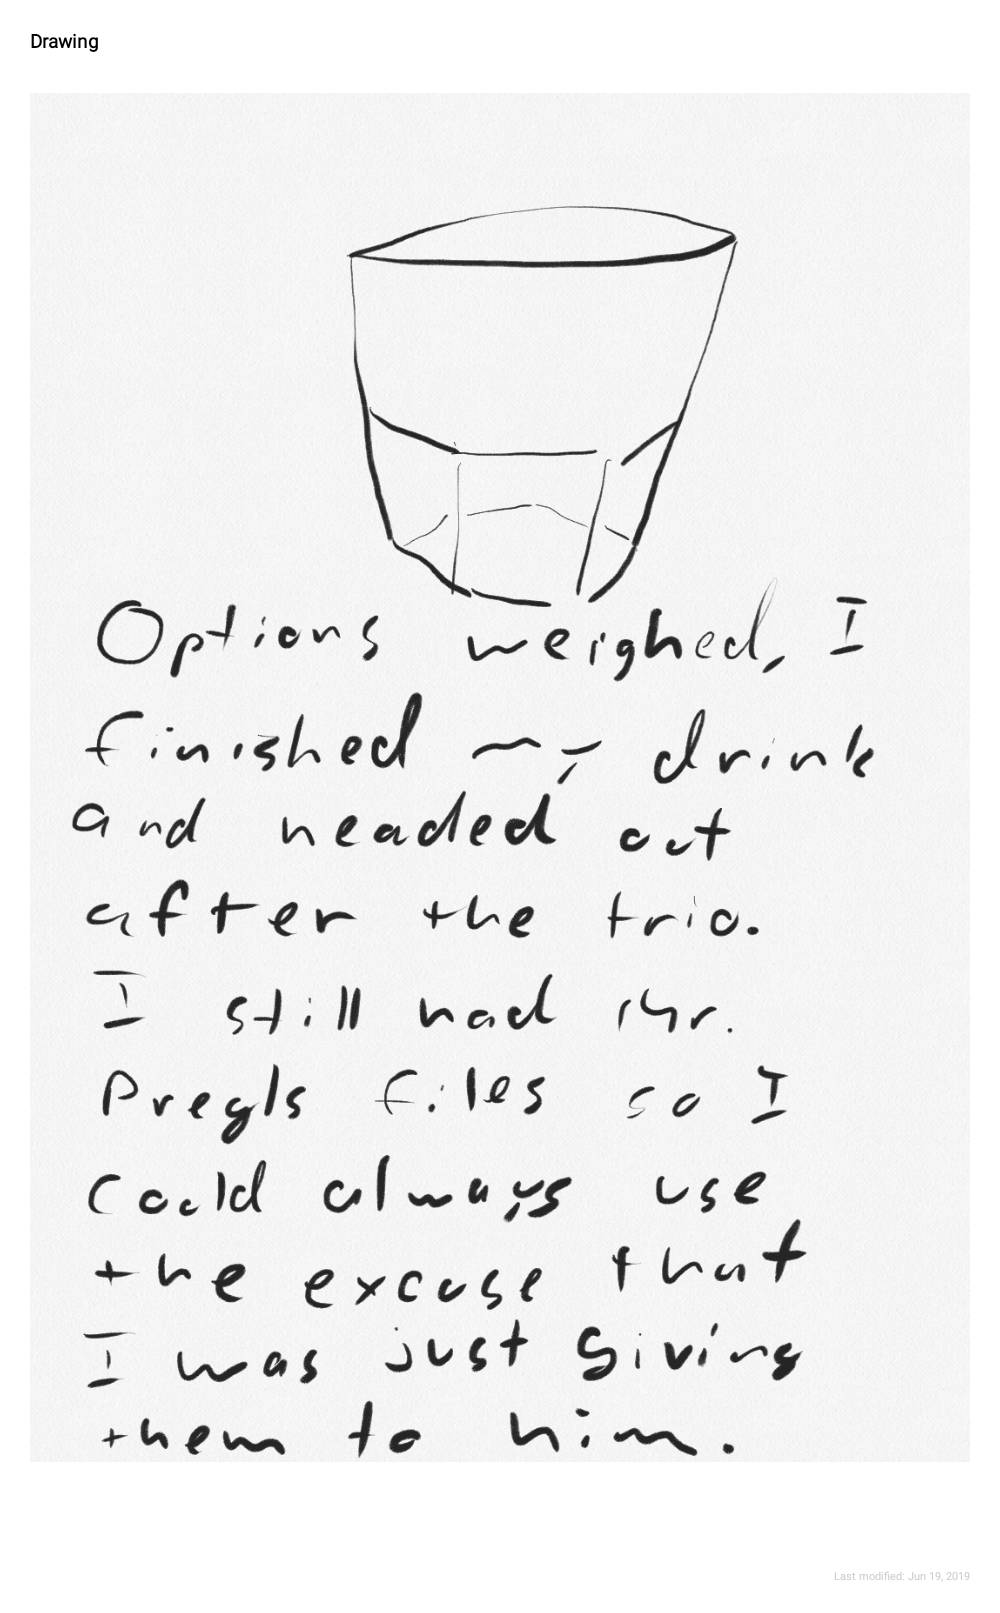 Drawing
Options weighed, I
finished my drink
and headed out
after the trio.
I still had Mr.
Pregls files so I
could always use
the excuse that
I was just giving
them to him.
Last modified: Jun 19, 2019